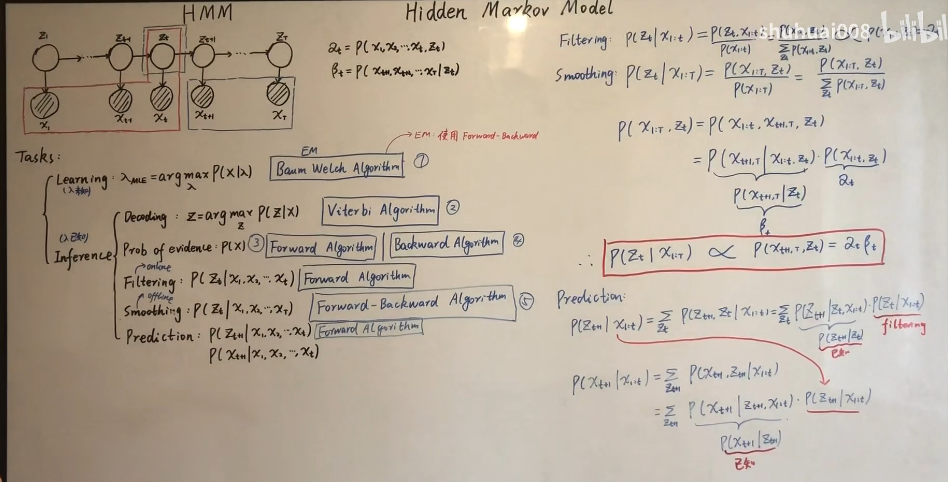 HMM
Hidden Markov Model
shuhuai008
bilibili
z₁ z_{t-1} z_t z_{t+1} z_T
x₁ x_{t-1} x_t x_{t+1} x_T
α_t = P(x₁, x₂, ⋯, x_t, z_t)
β_t = P(x_{t+1}, x_{t+2}, ⋯ x_T | z_t)
Tasks:
EM: 使用 Forward-Backward
EM
Learning: λ_{MLE} = arg max_λ P(X|λ) Baum Welch Algorithm ①
(λ未知)
Decoding: Z = arg max_Z P(Z|X) Viterbi Algorithm ②
(λ已知)
Inference
Prob of evidence: P(X) ③ Forward Algorithm | Backward Algorithm ④
online
Filtering: P(z_t | x₁, x₂, ⋯, x_t) Forward Algorithm
offline
Smoothing: P(z_t | x₁, x₂, ⋯, x_T) Forward-Backward Algorithm ⑤
Prediction: P(z_{t+1} | x₁, x₂, ⋯, x_t) Forward Algorithm
P(x_{t+1} | x₁, x₂, ⋯, x_t)
Filtering: P(z_t | x_{1:t}) = P(z_t, x_{1:t}) / P(x_{1:t}) =
Smoothing: P(z_t | x_{1:T}) = P(x_{1:T}, z_t) / P(x_{1:T}) = P(x_{1:T}, z_t) / Σ_{z_t} P(x_{1:T}, z_t)
P(x_{1:T}, z_t) = P(x_{1:t}, x_{t+1:T}, z_t)
= P(x_{t+1:T} | x_{1:t}, z_t) · P(x_{1:t}, z_t)
α_t
P(x_{t+1:T} | z_t)
β_t
∴ P(z_t | x_{1:T}) ∝ P(x_{1:T}, z_t) = α_t β_t
Prediction:
P(z_{t+1} | x_{1:t}) = Σ_{z_t} P(z_{t+1}, z_t | x_{1:t}) = Σ_{z_t} P(z_{t+1} | z_t, x_{1:t}) · P(z_t | x_{1:t})
filtering
P(z_{t+1} | z_t)
已知
P(x_{t+1} | x_{1:t}) = Σ_{z_{t+1}} P(x_{t+1}, z_{t+1} | x_{1:t})
= Σ_{z_{t+1}} P(x_{t+1} | z_{t+1}, x_{1:t}) · P(z_{t+1} | x_{1:t})
P(x_{t+1} | z_{t+1})
已知